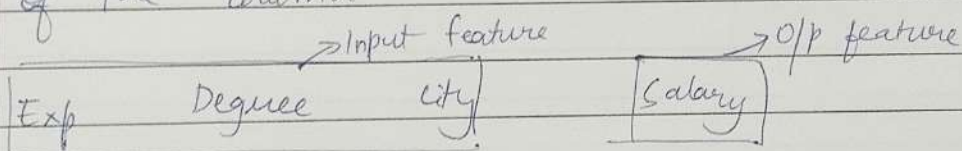 of the
Input feature O/P feature
Exp Degree City Salary